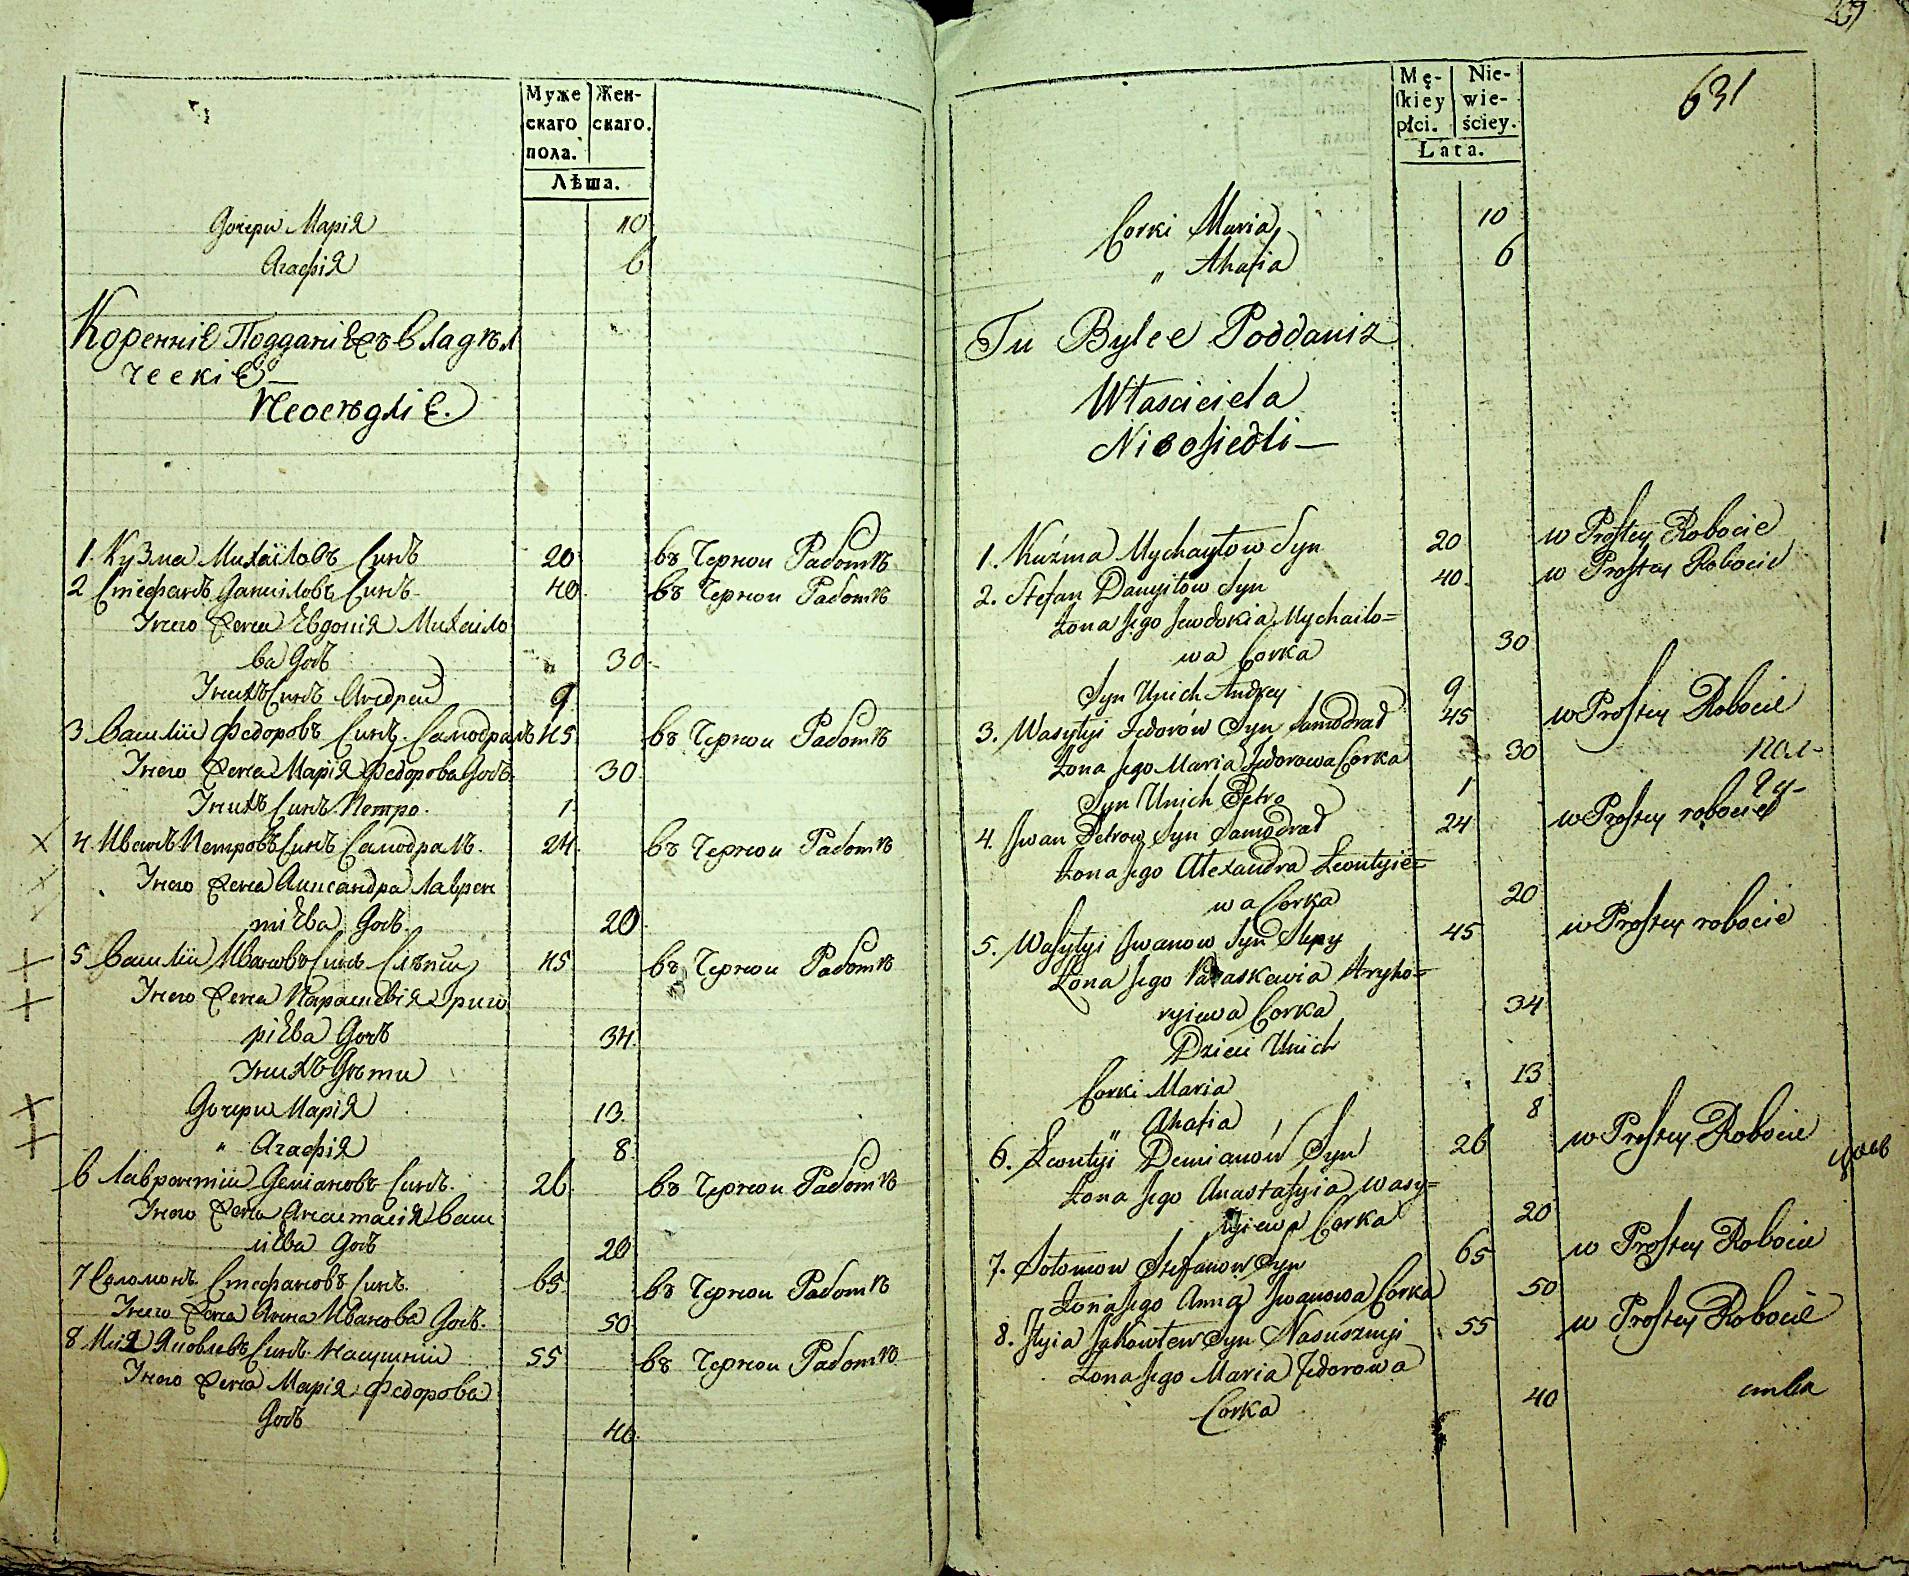 Муже
скаго
пола.
Жен-
скаго.
Лѣта.
Дочери Марія 10
Агафія 6
Коренніе Подданіе владѣл
ческіе
Неоседліе.
1. Кузма Михайловъ Синъ 20 въ Чернои Работѣ
2 Стефанъ Даниловъ Синъ 40 въ Чернои Работѣ
Унего Жена Евдокія Михаило
ва Дочь 30
Унихъ Синъ Андрей 9
3 Василіи Федоровъ Синъ Самодралъ 45 въ Чернои Работѣ
Унего Жена Марія Федорова Дочь 30
Унихъ Синъ Петро 1
4. Иванъ Петровъ Синъ Самодралъ. 24 въ Чернои Работѣ
Унего Жена Александра Лаврен
тіева Дочь 20
5 Василіи Ивановъ Синъ Слѣпіи 45 въ Чернои Работѣ
Унего Жена Параскевія Григо
ріева Дочь 34
Унихъ Дѣти
Дочери Марія 13
" Агафія 8
6 Лаврентіи Деміановъ Синъ. 26 въ Чернои Работѣ
Унего Жена Анастасія Васи
ліева Дочь 20
7 Соломонъ Стефановъ Синъ 65 въ Чернои Работѣ
Унего Жена Анна Иванова Дочь. 50
8 Илія Яковлевъ Синъ Насушніи 55 въ Чернои Работѣ
Унего Жена Марія Федорова
Дочь 40
631
Mę-
skiey
płci.
Nie-
wie-
ściey.
Lata.
Corki Maria 10
" Ahafia 6
Tu Bylce Poddani z
Własciciela
Nieosiedli
1. Kuźma Mychayłow Syn 20 w Prostey Robocie
2. Stefan Danyiłow Syn 40 w Prostey Robocie
Zona Jego Jewdokia Mychaiło=
wa Corka 30
Syn Unich Andrey 9
3. Wasylyi Fedorów Syn Samodrał 45 w Prostey Robocie
Zona Jego Maria Fedorowa Corka 30
Syn Unich Petro 1
4. Jwan Petrow Syn Samodrał 24 w Prostey robocie
Zona Jego Alexandra Leontyie=
wa Corka 20
5. Wasylyi Jwanow Syn Slepy 45 w Prostey robocie
Zona Jego Paraskewia Hryho=
ryiewa Corka 34
Dzieci Unich
Corki Maria 13
" Ahafia 8
6. Leontyi Demianów Syn 26 w Prostey Robocie
Zona Jego Anastasyia Wasy=
lyiewa Corka 20
7. Sołomon Stefanow Syn 65 w Prostey Robocie
Zona Jego Anna Jwanowa Corka 50
8. Jlyia Jakowlew Syn Nasusznyi 55 w Prostey Robocie
Zona Jego Maria Fedorowa
Corka 40